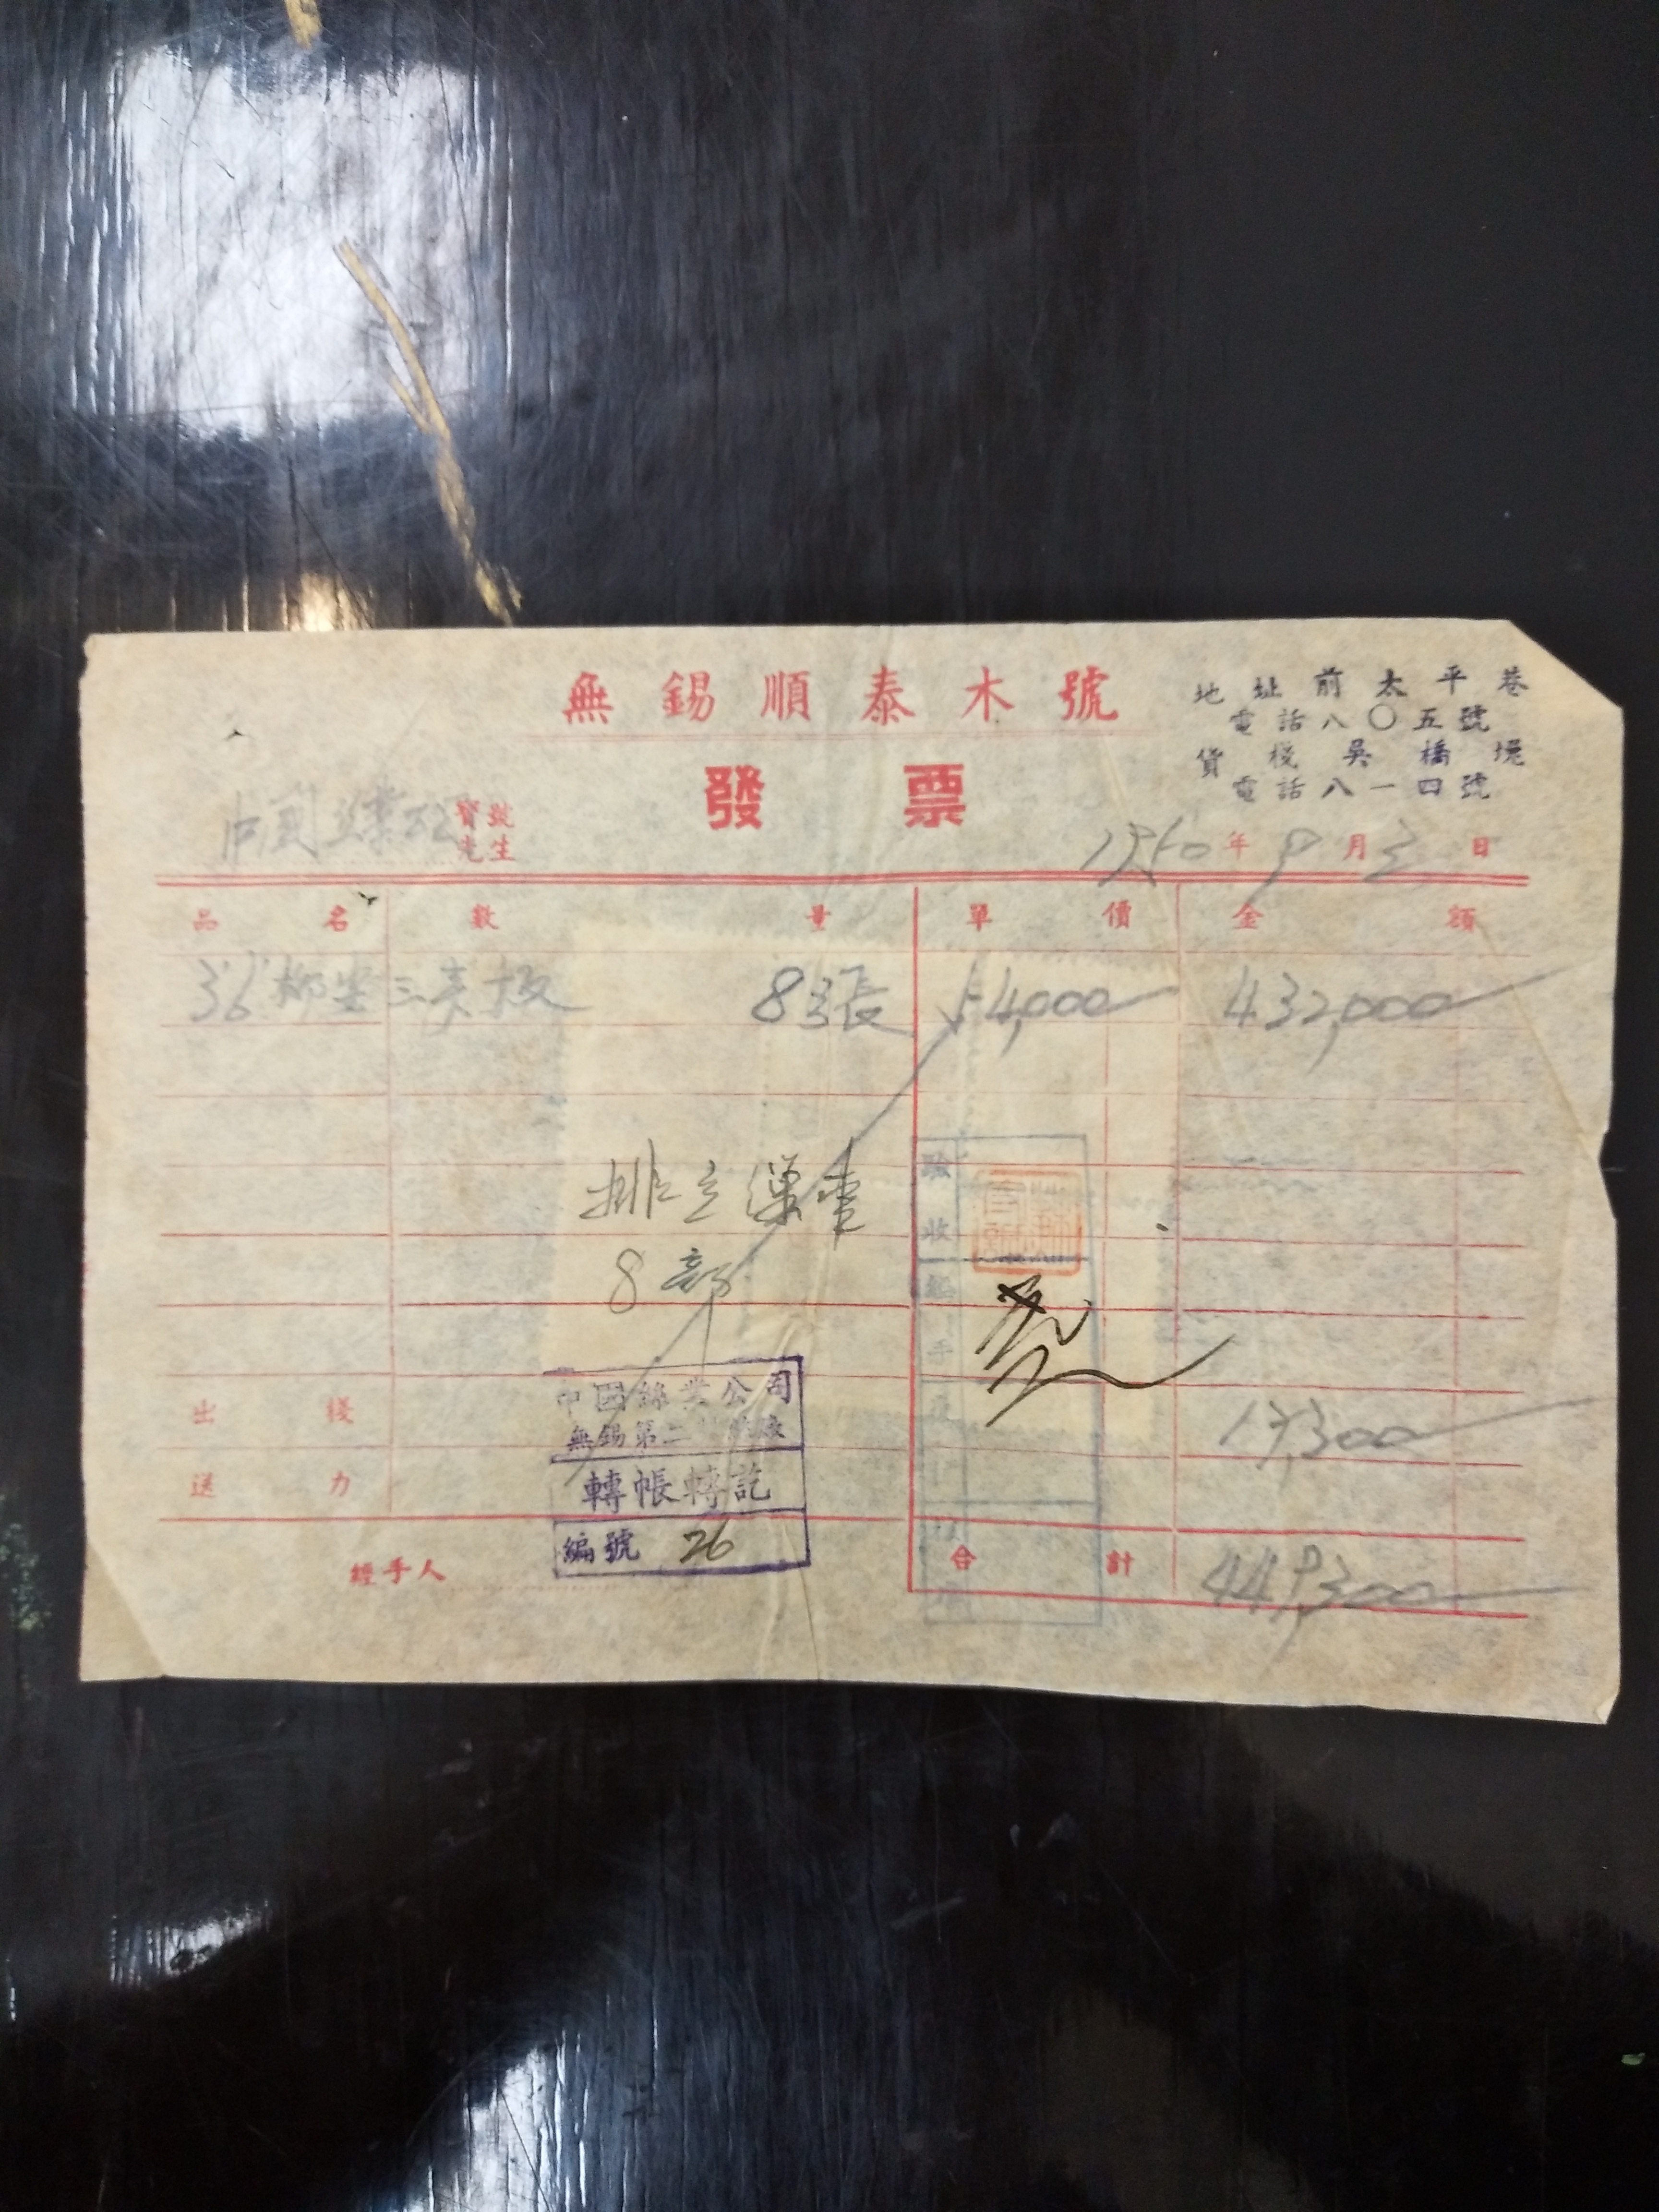 無錫順泰木號
發票
地址前太平巷
電話八〇五號
貨棧吳橋堍
電話八一四號
中国 寶號
先生
1950年9月3日
品名 數量 單價 金額
3'6' 柳安三夾板 8張 54,000 432,000
排立繅車
8部
驗收
經手
中國絲業公司
無錫第二
轉帳轉訖
編號 26
出棧 17,300
送力
經手人
合計 449,300